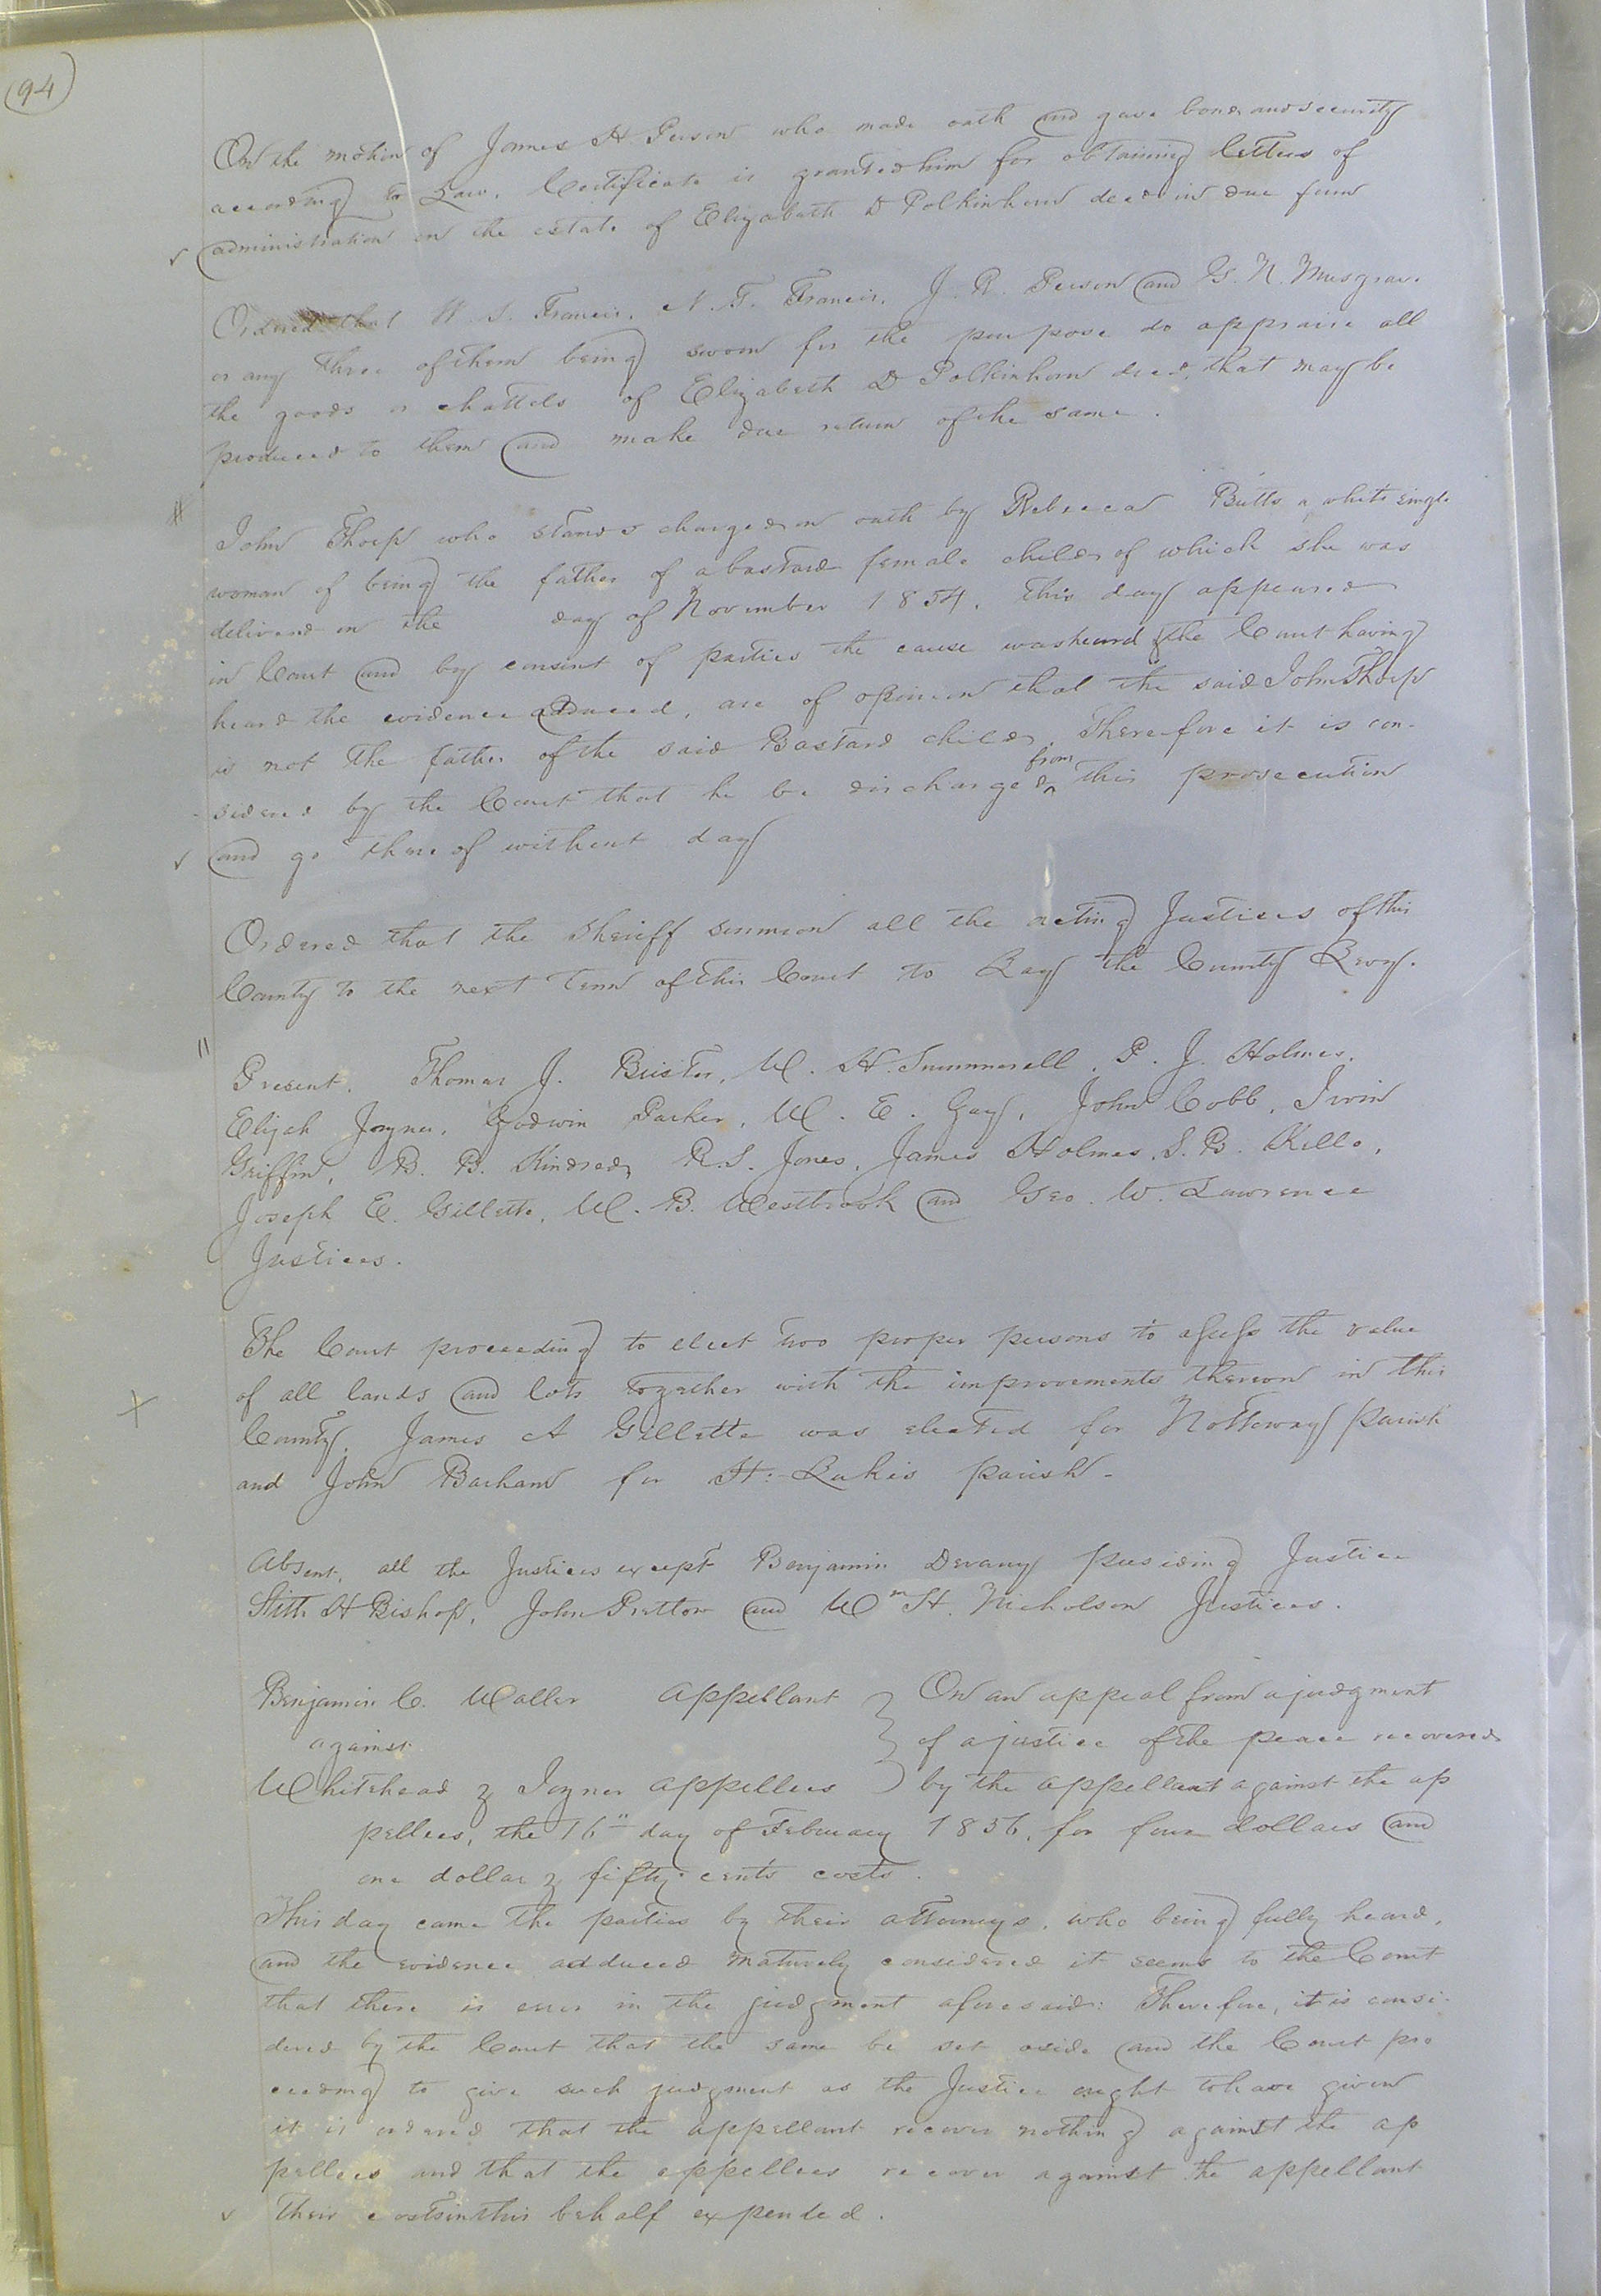 94
On the motion of James H Person who made oath and gave bond and security
according to Law, Certificate is granted him for obtaining letters of
administration on the estate of Elizabeth D Polkinhorn decd in due form
Ordered that W. S. Francis, N. T. Francis, J. R. Person and G. N. Musgrave
or any three of them being sworn for the purpose do appraise all
the goods or chattels of Elizabeth D Polkinhorn decd, that may be
produced to them and make due return of the same.
John Thorp who stands charged on oath by Rebecca Butts a white single
woman of being the father of a bastard female child of which she was
delivered on the day of November 1854, this day appeared
in Court and by consent of parties the cause was heard & the Court having
heard the evidence adduced, are of opinion that the said John Thorp
is not the father of the said Bastard child. Therefore it is con-
-sidered by the Court that he be discharged from this prosecution
and go thereof without day
Ordered that the Sheriff summon all the acting Justices of this
County to the next Term of this Court to Lay the County Levy.
Present. Thomas J. Brister, W. H. Summerell, P. J. Holmes,
Elijah Joyner, Godwin Parker, W. E. Gay, John Cobb, Irvin
Griffin, B. B. Kindred, R. S. Jones, James Holmes, S. B. Kello,
Joseph E. Gillette, W. B. Westbrook and Geo. W. Lawrence
Justices.
The Court proceeding to elect two proper persons to assess the value
of all lands and lots together with the improvements thereon in this
County, James A Gillette was elected for Nottoway parish
and John Barham for St: Lukes parish -
Absent, all the Justices except Benjamin Devany presiding Justice
Stith H Bishop, John Pretlow and Wm H. Nicholson Justices.
Benjamin C. Waller appellant } On an appeal from a judgment
against } of a justice of the peace recovered
Whitehead & Joyner appellees } by the appellant against the ap
pellees, the 16th day of February 1856, for four dollars and
one dollar & fifty cents costs.
This day came the parties by their attorneys, who being fully heard,
and the evidence adduced maturely considered it seems to the Court
that there is error in the judgment aforesaid: Therefore, it is consi-
dered by the Court that the same be set aside and the Court pro
ceeding to give such judgment as the Justice ought to have given
it is ordered that the appellant recover nothing against the ap
pellees and that the appellees recover against the appellant
their costs in this behalf expended.